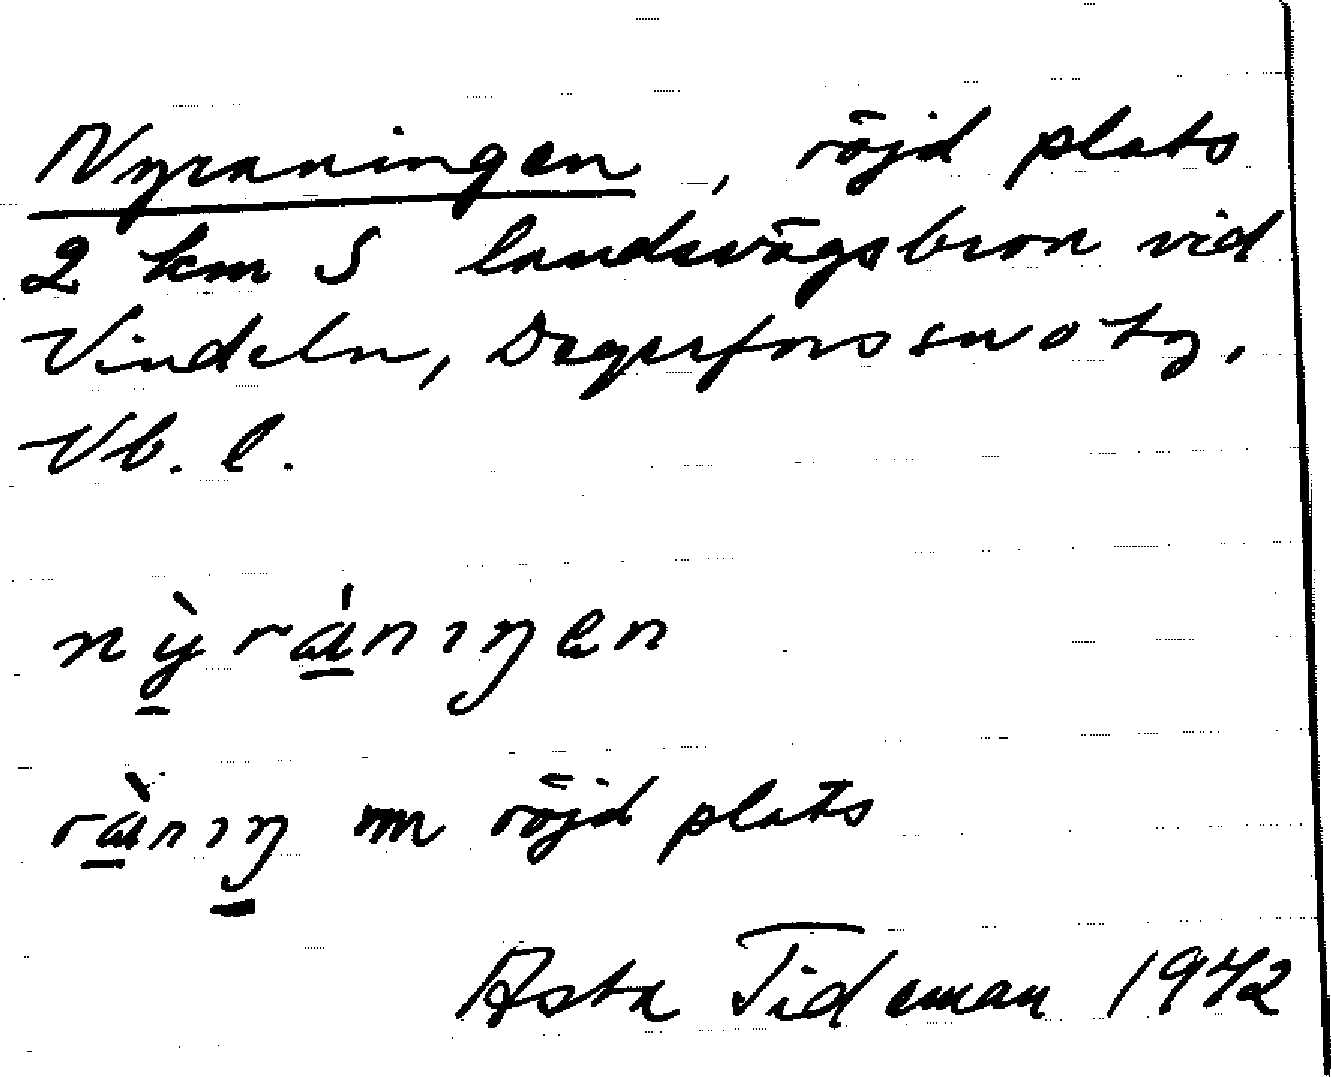 Nyraningen, röjd plats
2 km S landsvägsbron vid
Vindeln, Degerfors sn o tg,
Vb. l.
nỳ rániŋen
ràniŋ m röjd plats
Asta Tideman 1942